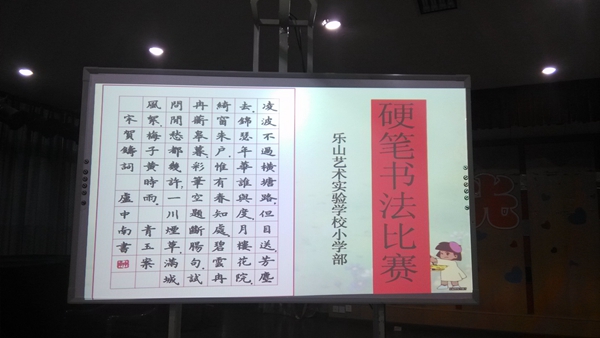 硬笔书法比赛
乐山艺术实验学校小学部
凌波不過橫塘路,但目送芳塵
去錦瑟年華誰與度月樓花院,
綺窗朱户,惟有春知處碧雲冉
冉蘅皋暮,彩筆空題斷腸句,試
問閒愁都幾許,一川煙草滿城
風絮,梅子黄時雨. 青玉案
宋賀鑄詞 盧中南書
光